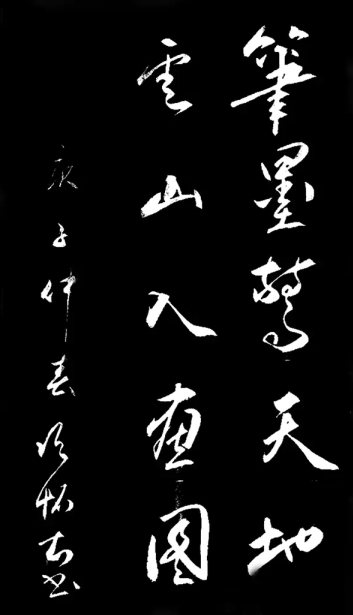 筆墨驚天地
雲山入畫圖
庚子仲春 懷 書